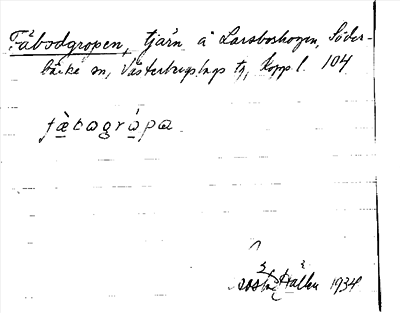 Fäbodgropen, tjärn å Larsboskogen, Söder-
bärke sn, Västerbergslags tg, Kopp l. 104
fæ̀bogrópa
Hällen 1934